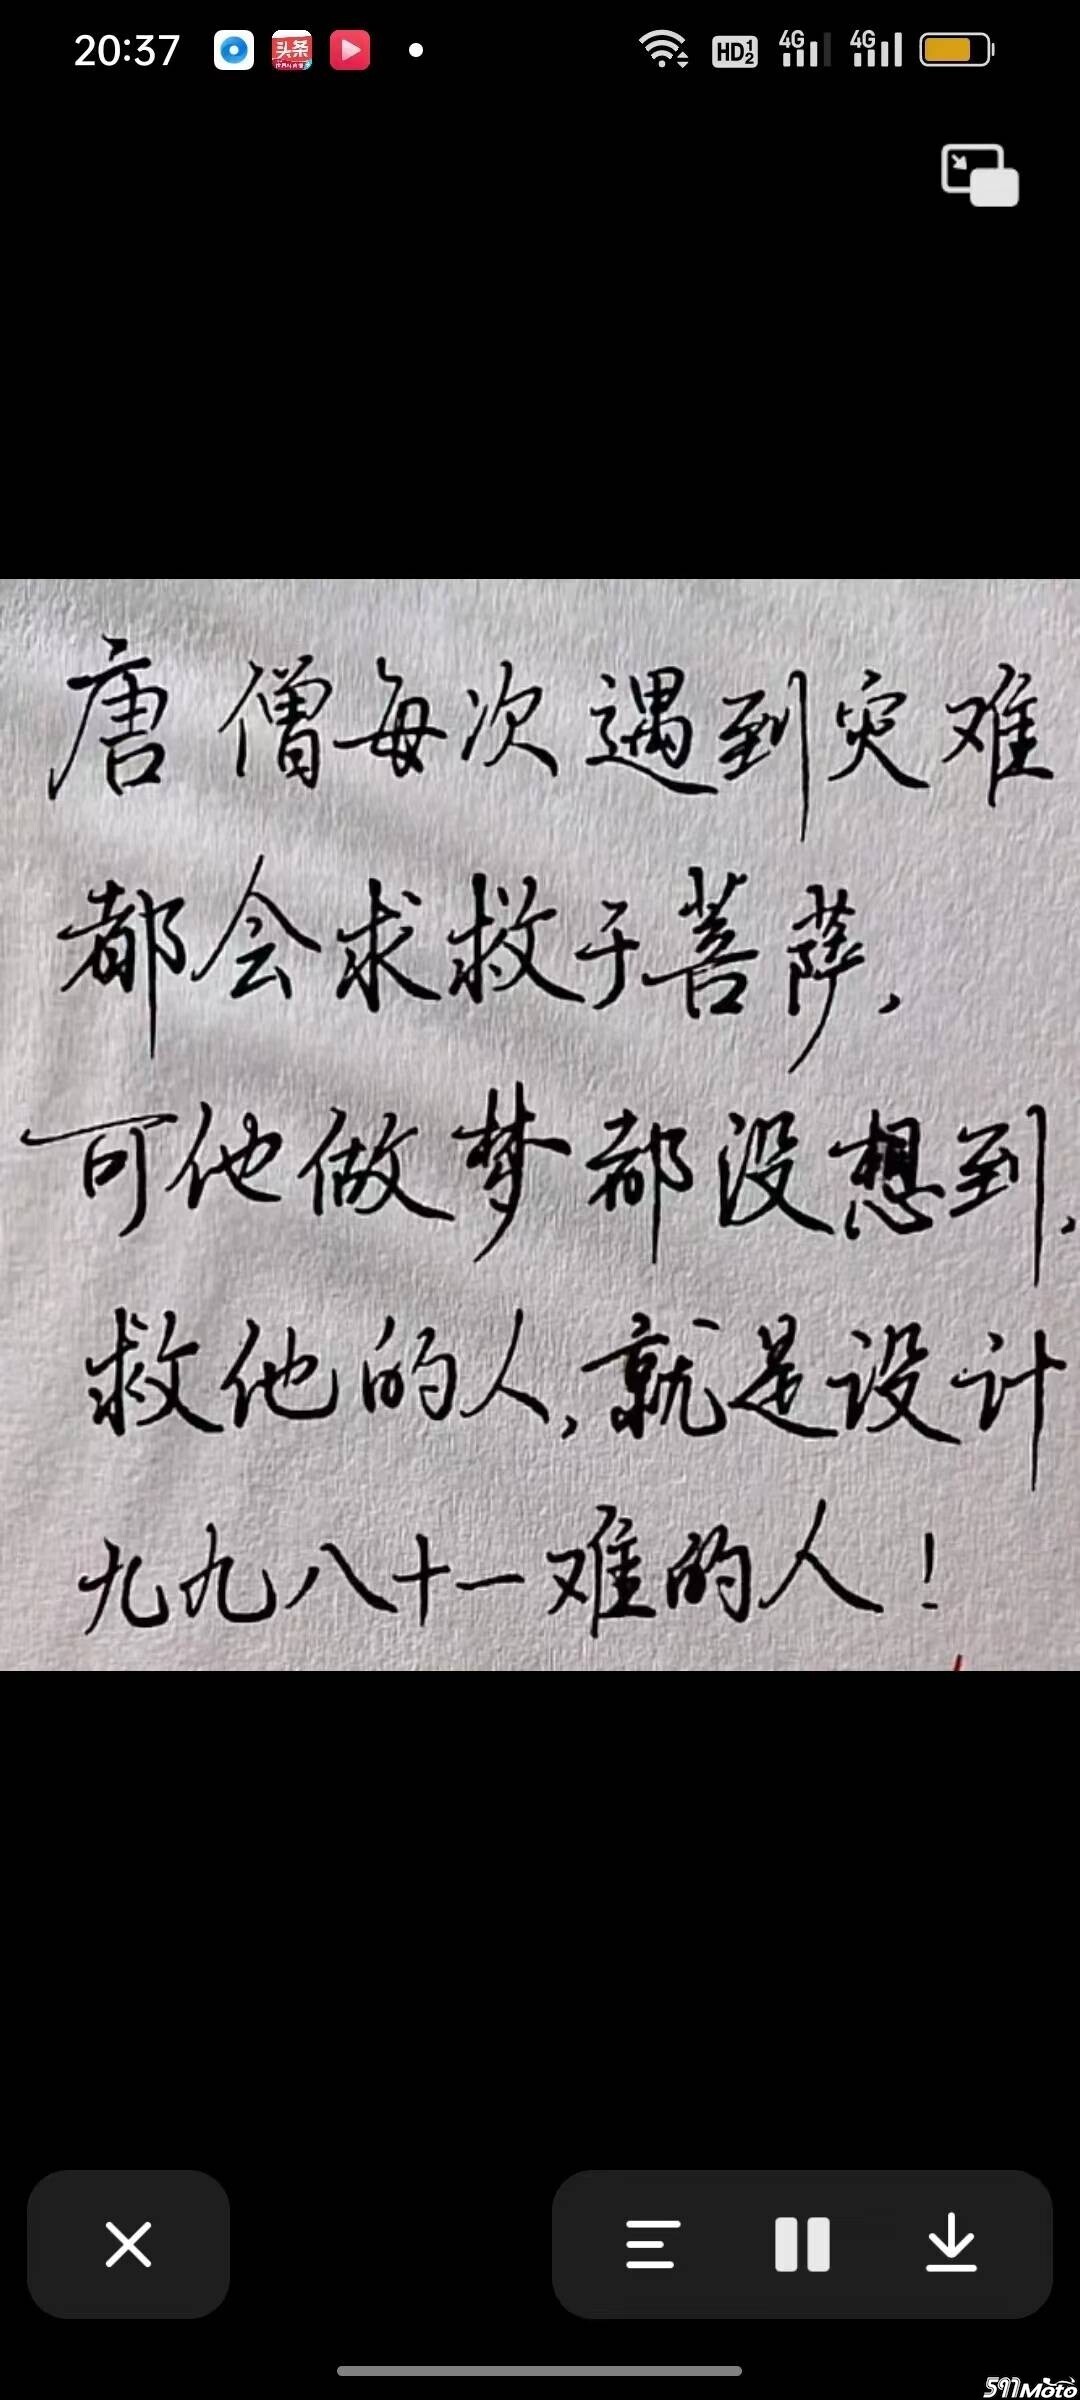 20:37
头条
HD 1 2
4G
4G
唐僧每次遇到灾难
都会求救于菩萨，
可他做梦都没想到，
救他的人，就是设计
九九八十一难的人！
591Moto